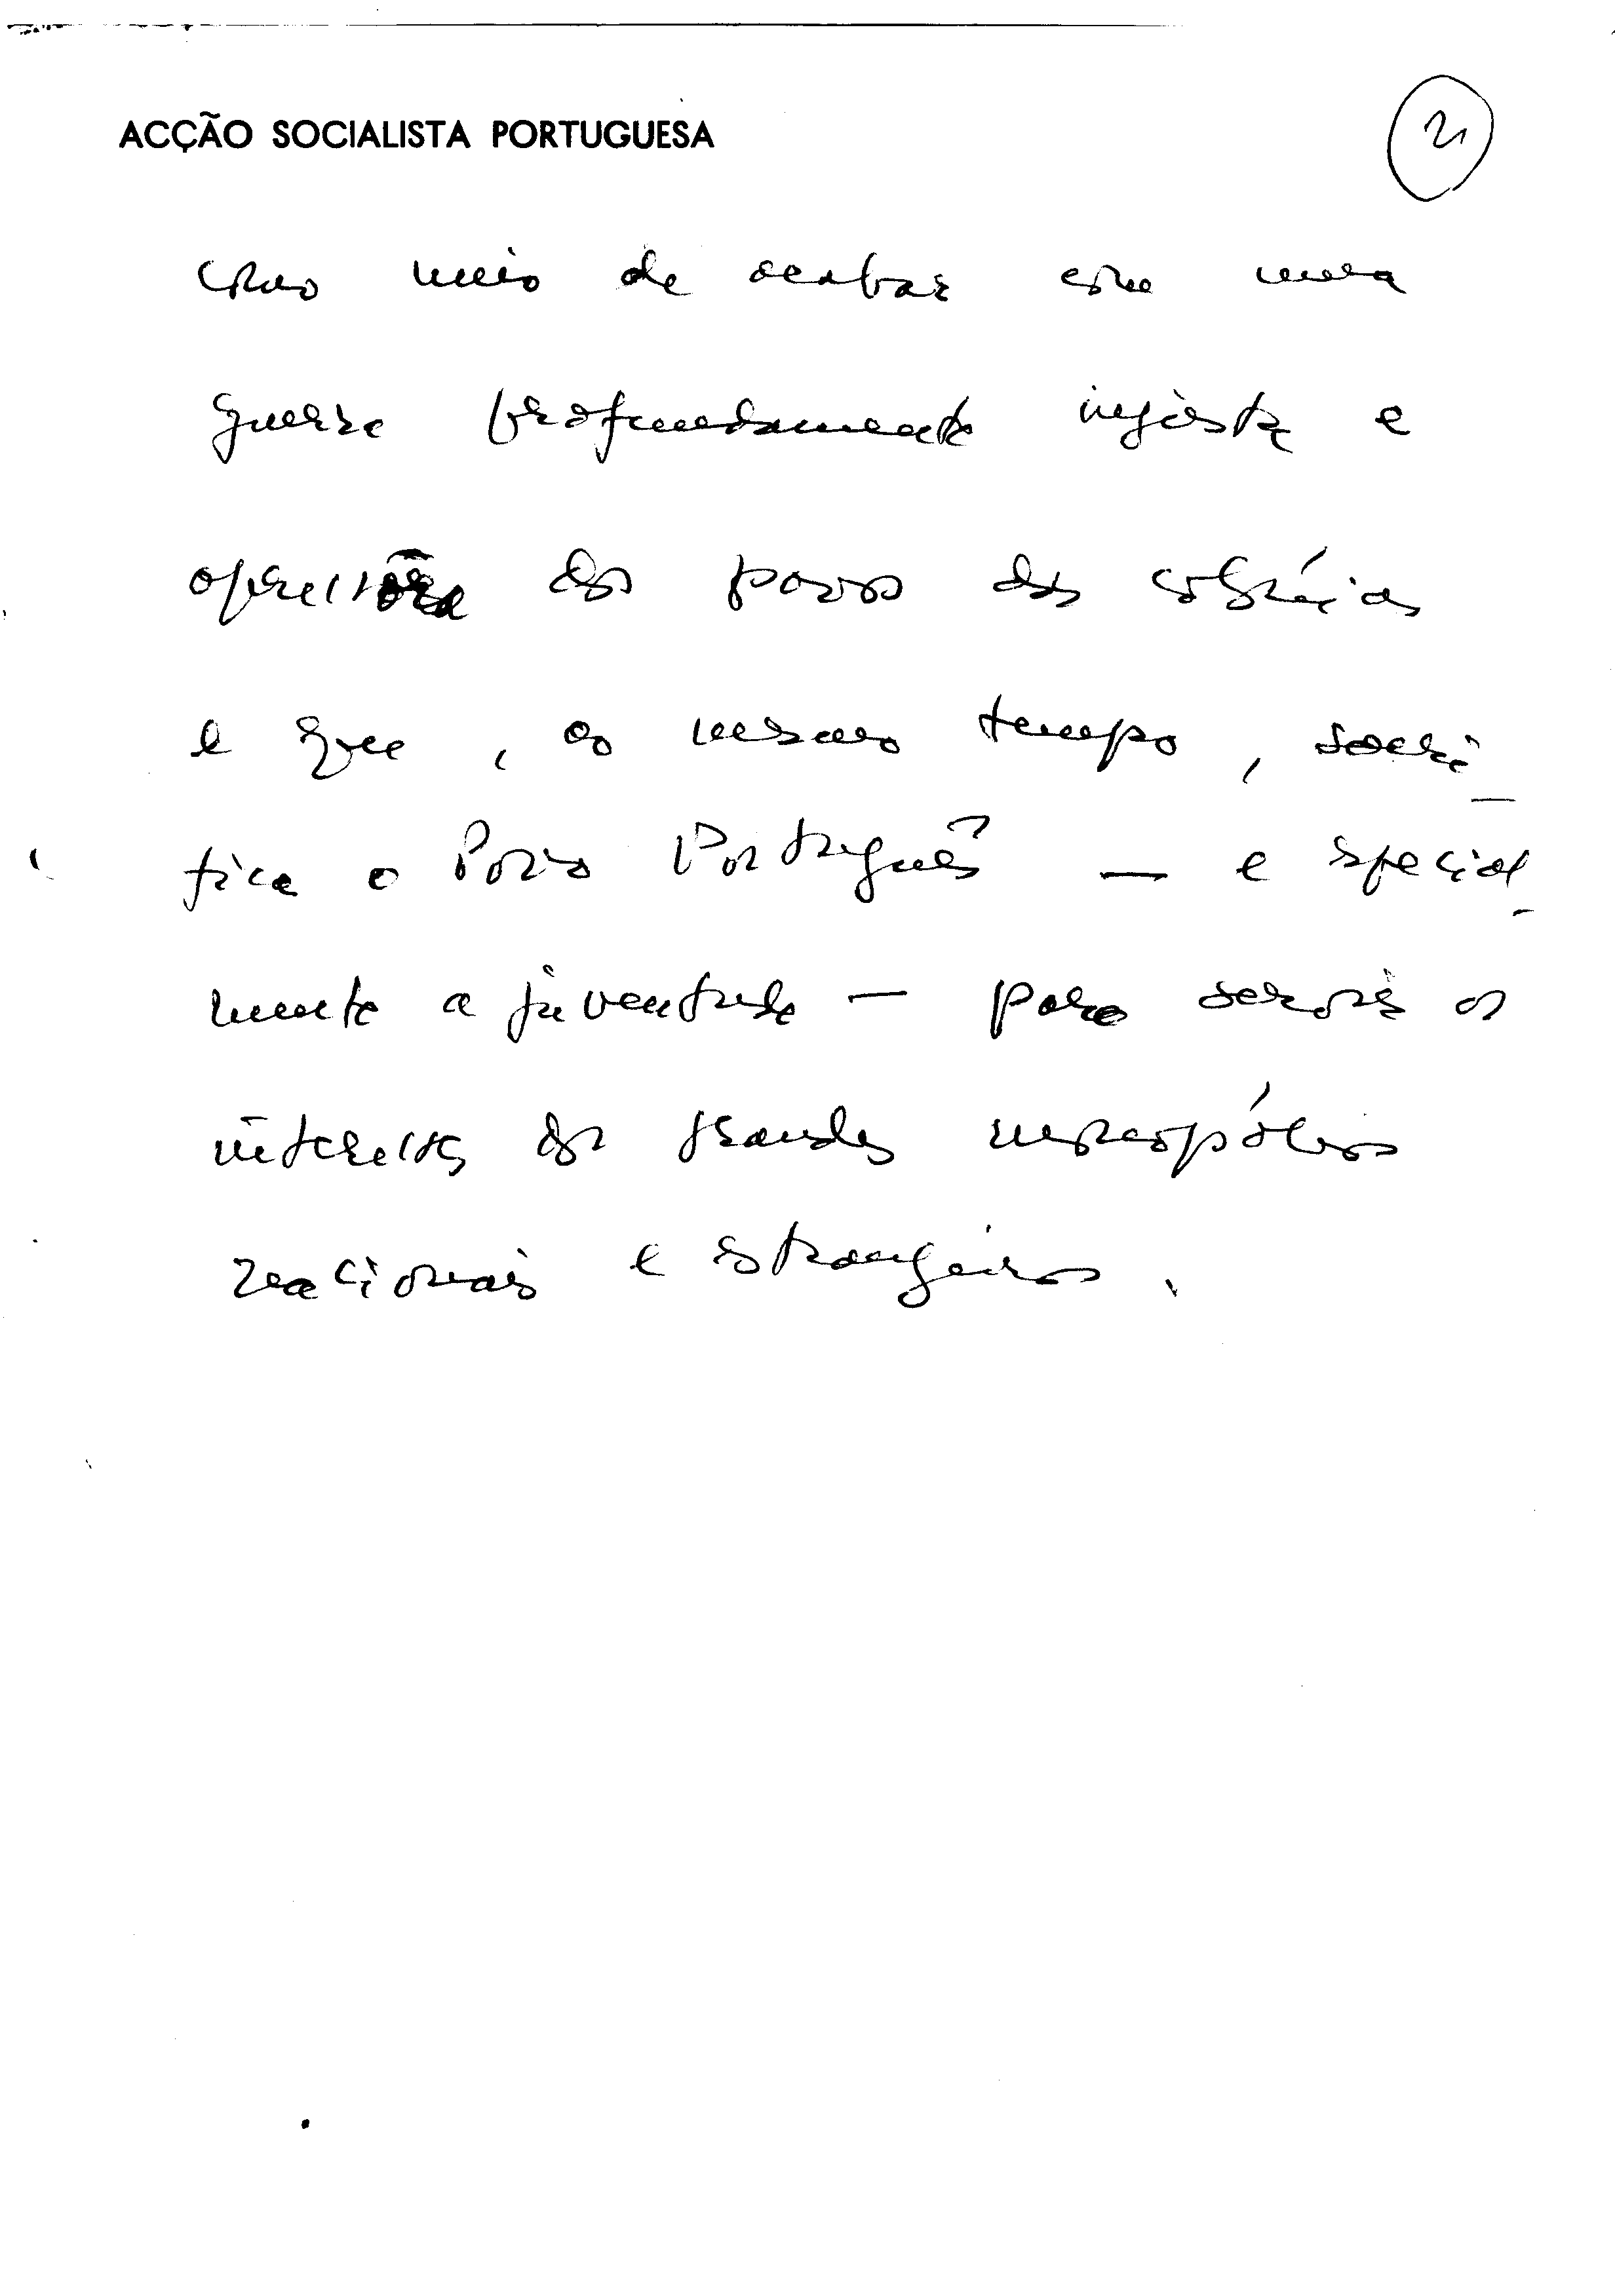 ACÇÃO SOCIALISTA PORTUGUESA
21
como meio de acabar com uma
guerra profundamente injusta e
opressora dos povos das colónias
e que, ao mesmo tempo, sacri-
fica o Povo Português — e especial-
mente a juventude — para servir os
interesses dos grandes monopólios
nacionais e estrangeiros.